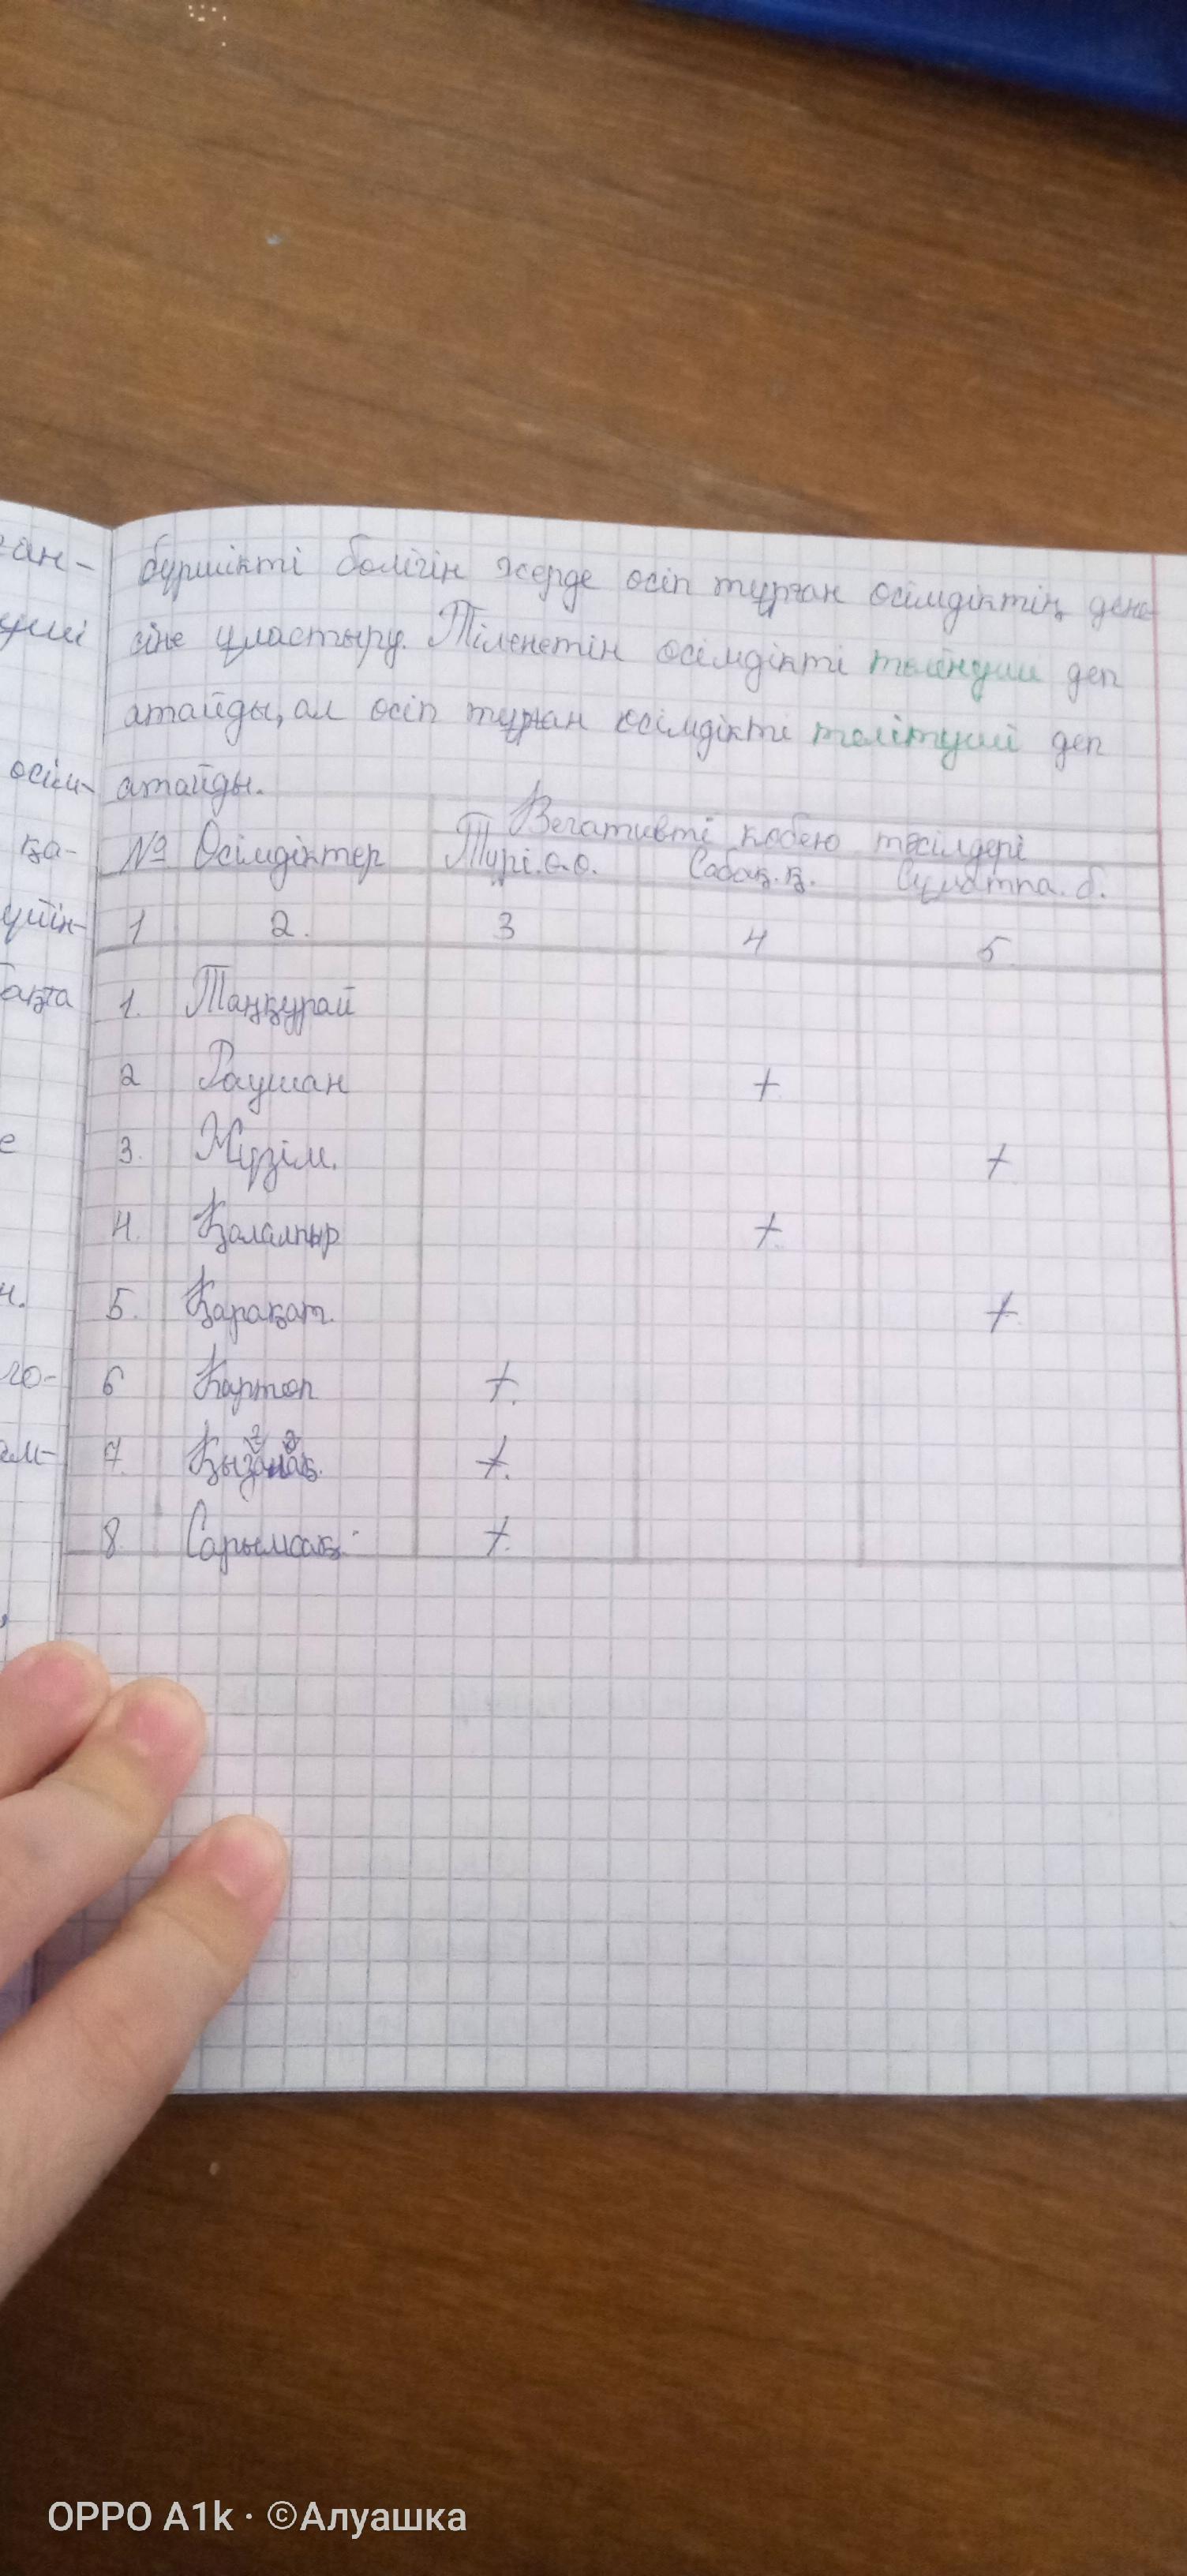 ған-
уші
өсім-
қа-
үшін-
бақта
е
н.
го-
ам-
бүршікті бөлігін жерде өсіп тұрған өсімдіктің дене
сіне ұластыру. Тіленетін өсімдікті телінуші деп
атайды, ал өсіп тұрған өсімдікті телітуші деп
атайды.
Вегативті көбею тәсілдері
№ Өсімдіктер Түрі.ө.ө. Сабақ.қ. Сұлатпа.б.
1 2. 3 4 5.
1. Таңқурай
2 Раушан +
3. Жүзім. +
4. Қалампыр +
5. Қарақат. +
6 Картоп +.
7. Қызанақ. +.
8 Сарымсақ. +.
OPPO A1k · ©Алуашка